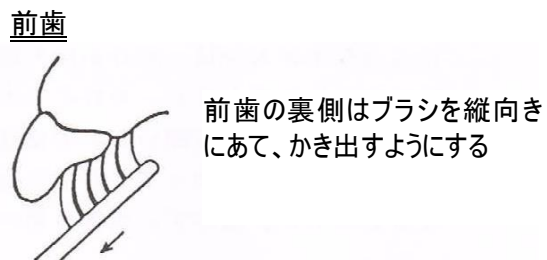 前歯
前歯の裏側はブラシを縦向き
にあて、かき出すようにする